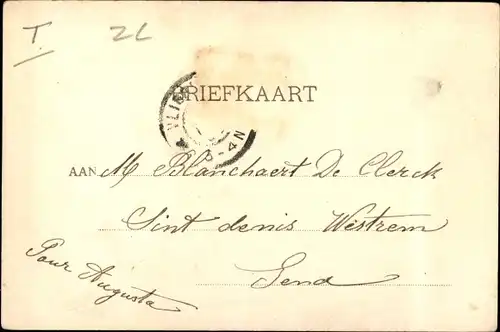 T. 2L
BRIEFKAART
AAN M Blanchaert De Clerck
Sint denis Westrem
Pour Augusta
Gend